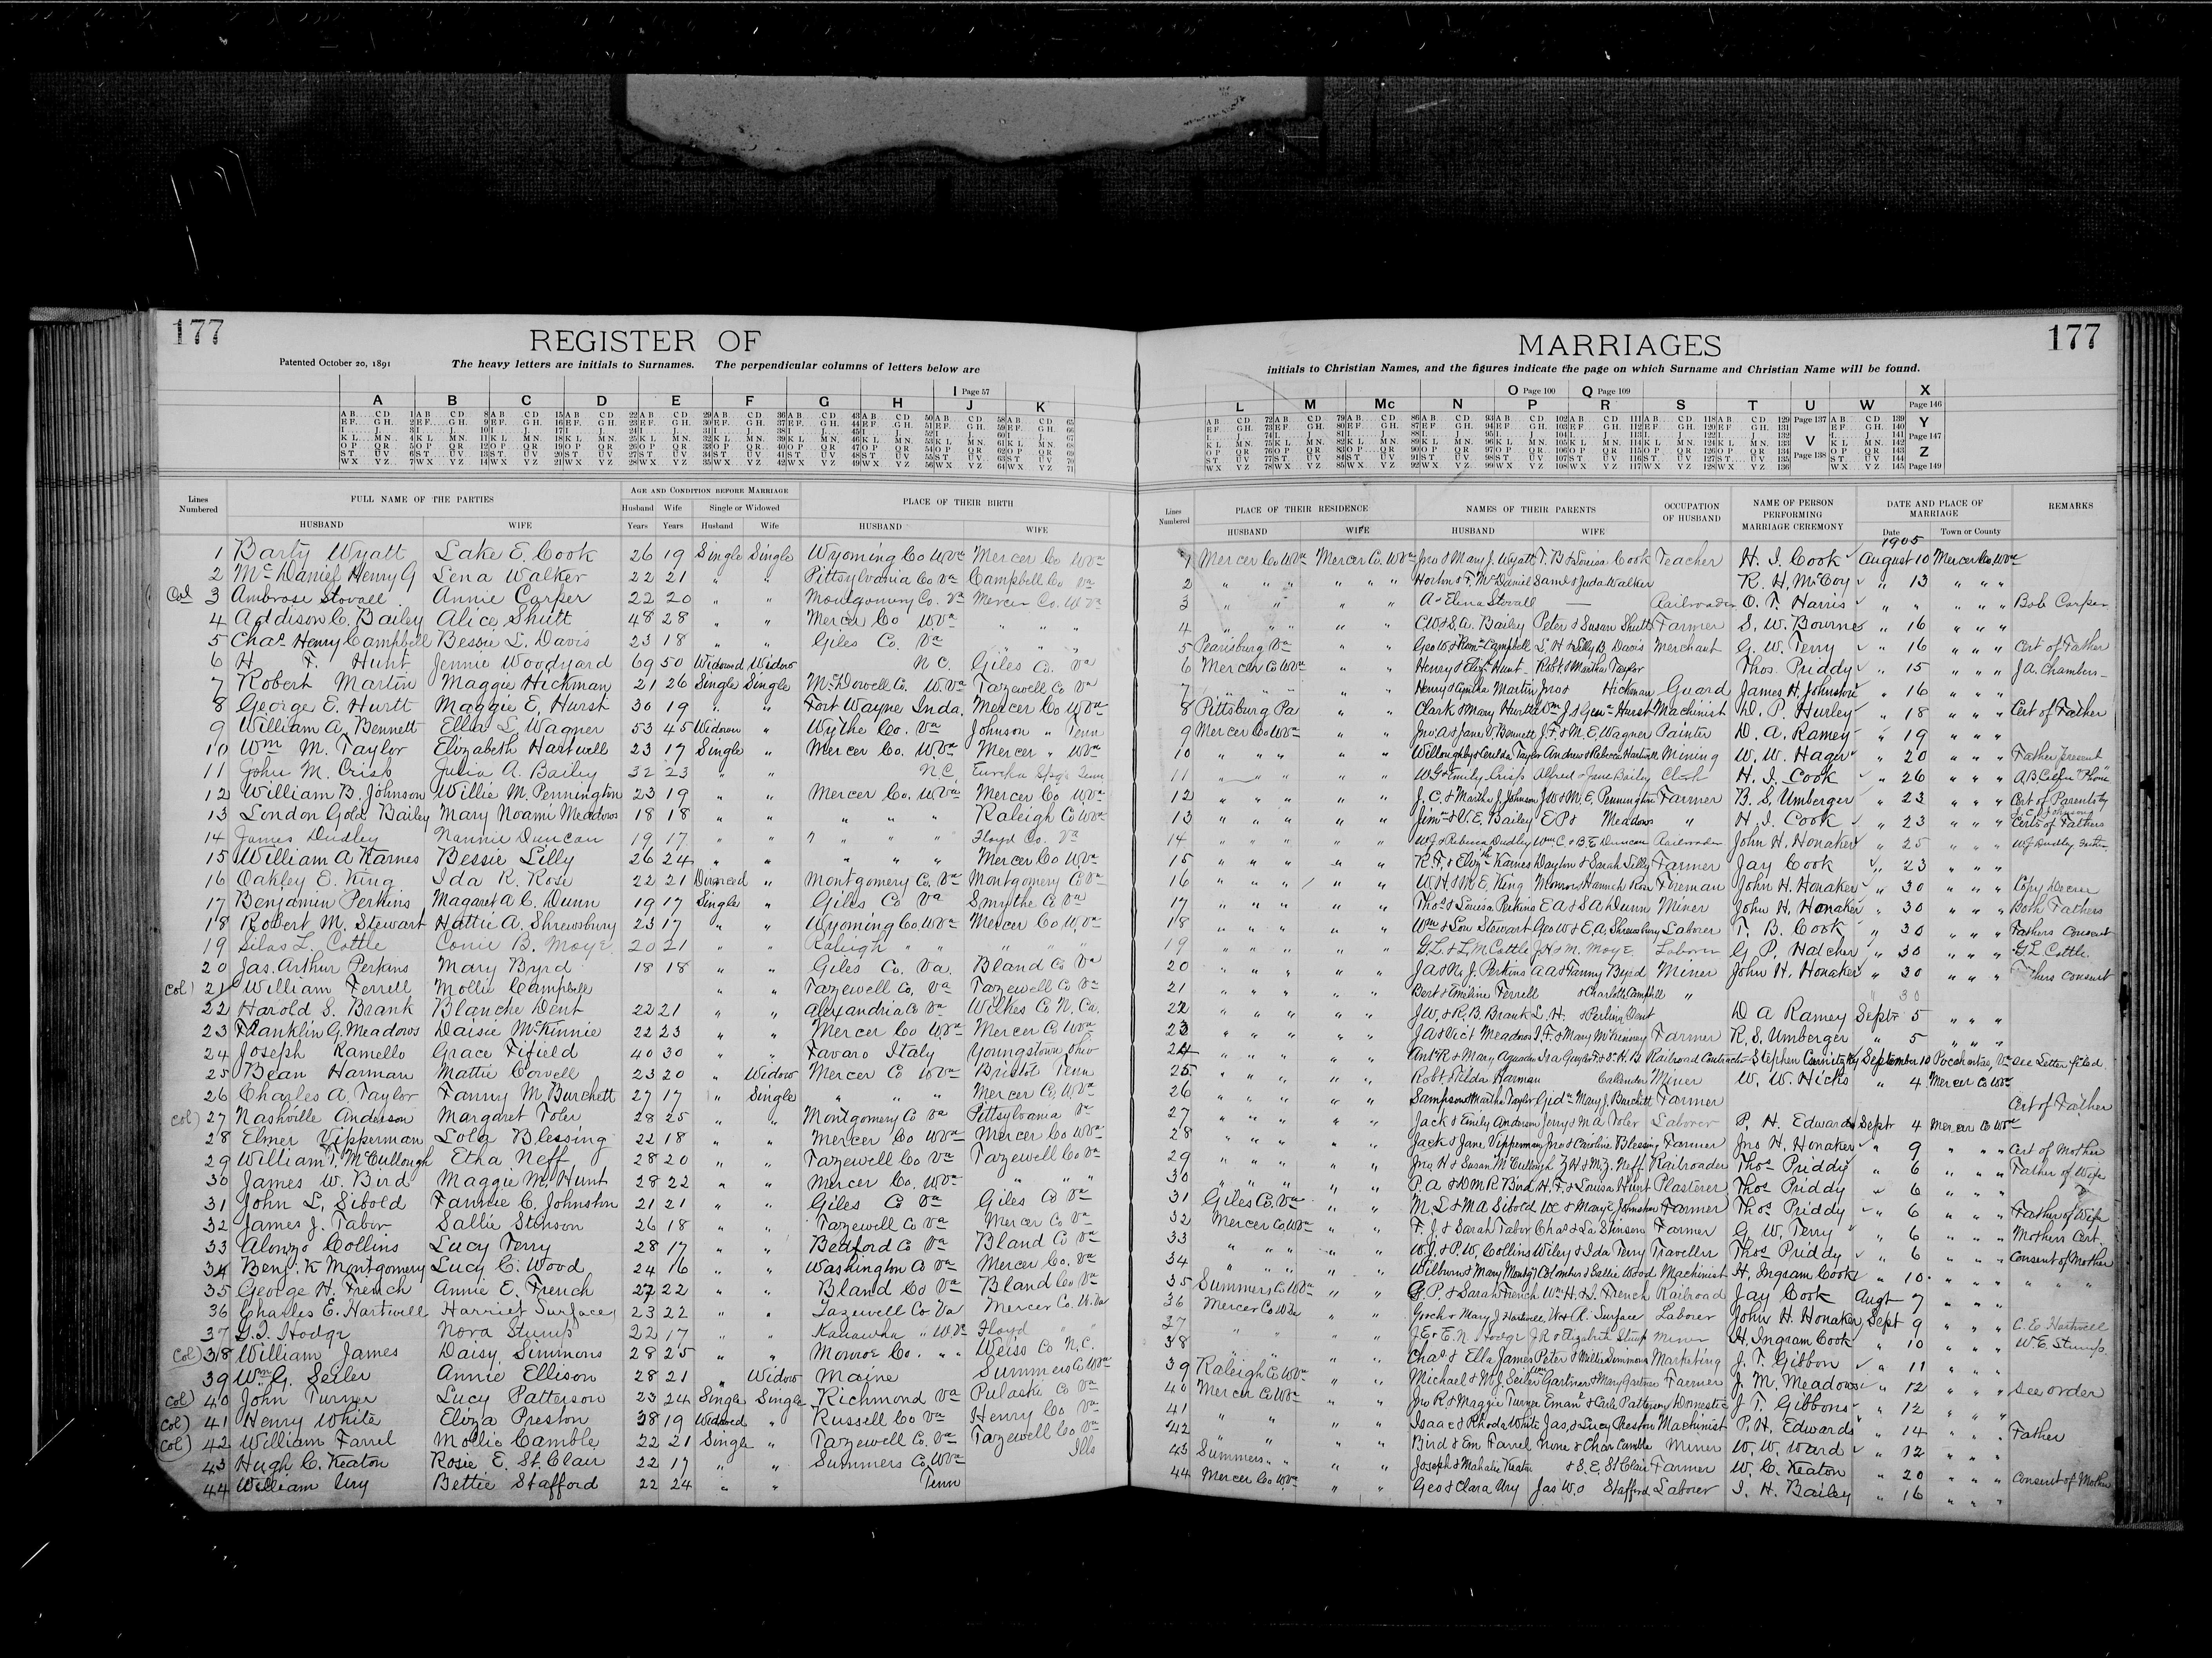 177
REGISTER OF
MARRIAGES
177
Patented October 20, 1891 The heavy letters are initials to Surnames. The perpendicular columns of letters below are
initials to Christian Names, and the figures indicate the page on which Surname and Christian Name will be found.
I Page 57
O Page 100 Q Page 109
X
A B C D E F G H J K
L M Mc N P R S T U W
Page 146
Y
Page 147
Z
Page 149
Page 137
V
Page 138
Lines Numbered
FULL NAME OF THE PARTIES
HUSBAND WIFE
AGE AND CONDITION BEFORE MARRIAGE
Husband Wife Single or Widowed
Years Years Husband Wife
PLACE OF THEIR BIRTH
HUSBAND WIFE
Lines Numbered
PLACE OF THEIR RESIDENCE
HUSBAND WIFE
NAMES OF THEIR PARENTS
HUSBAND WIFE
OCCUPATION OF HUSBAND
NAME OF PERSON PERFORMING MARRIAGE CEREMONY
DATE AND PLACE OF MARRIAGE
Date Town or County
REMARKS
1905
1 Barty Wyatt Lake E. Cook 26 19 Single Single Wyoming Co W.Va Mercer Co W.Va
2 McDaniel Henry G Lena Walker 22 21 " " Pittsylvania Co Va Campbell Co Va
Col 3 Ambrose Stovall Annie Carper 22 20 " " Montgomery Co. Va Mercer Co. W.Va
4 Addison C. Bailey Alice Shutt 48 28 " " Mercer Co W.Va " " "
5 Chas Henry Campbell Bessie L. Davis 23 18 " " Giles Co. Va " " "
6 H. F. Hunt Jennie Woodyard 69 50 Widowed Widow N.C. Giles Co. Va
7 Robert Martin Maggie Hickman 21 26 Single Single McDowell Co. W.Va Tazewell Co Va
8 George E. Hurtt Maggie E. Hurst 30 19 " " Fort Wayne Inda. Mercer Co W.Va
9 William A. Bennett Ella L. Wagner 53 45 Widower " Wythe Co. Va Johnson " Tenn
10 Wm M. Taylor Elizabeth Hartwell 23 17 Single " Mercer Co. W.Va Mercer " W.Va
11 John M. Crisp Julia A. Bailey 32 23 " " N.C. Eureka Spgs Tenn
12 William B. Johnson Willie M. Pennington 23 19 " " Mercer Co. W.Va Mercer Co W.Va
13 London Gold Bailey Mary Noami Meadows 18 18 " " " " " Raleigh Co W.Va
14 James Dudley Nannie Duncan 19 17 " " " " " Floyd Co. Va
15 William A Karnes Bessie Lilly 26 24 " " " " " Mercer Co W.Va
16 Oakley E. King Ida R. Rose 22 21 Divorced " Montgomery Co. Va Montgomery Co Va
17 Benjamin Perkins Magaret A. C. Dunn 19 17 Single " Giles Co Va Smythe Co Va
18 Robert M. Stewart Hattie A. Shrewsbury 23 17 " " Wyoming Co W.Va Mercer Co W.Va
19 Silas L. Cottle Conie B. Moye 20 21 " " Raleigh " " " " "
20 Jas. Arthur Perkins Mary Byrd 18 18 " " Giles Co. Va. Bland Co Va
Col) 21 William Ferrell Mollie Campbell " " Tazewell Co. Va Tazewell Co Va
22 Harold S. Brank Blanche Dent 22 21 " " Alexandria Co Va Wilkes Co N. Ca.
23 Franklin G. Meadows Daisie McKinnie 22 23 " " Mercer Co W.Va Mercer Co W.Va
24 Joseph Ramello Grace Fifield 40 30 " " Favaro Italy Youngstown Ohio
25 Bean Harman Mattie Corvell 23 20 " Widow Mercer Co W.Va Bristol Tenn
26 Charles A. Taylor Fanny M. Burchett 27 17 " Single " " " Mercer Co, W.Va
Col) 27 Nashville Anderson Margaret Toler 28 25 " " Montgomery Co Va Pittsylvania Va
28 Elmer Vipperman Lola Blessing 22 18 " " Mercer Co W.Va Mercer Co W.Va
29 William T. McCullough Etha Neff 28 20 " " Tazewell Co Va Tazewell Co Va
30 James W. Bird Maggie M. Hunt 28 22 " " Mercer Co. W.Va " " "
31 John L. Sibold Fannie C. Johnston 21 21 " " Giles Co Va Giles Co Va
32 James J. Tabor Sallie Stinson 26 18 " " Tazewell Co Va Mercer Co Va
33 Alonzo Collins Lucy Terry 28 17 " " Bedford Co Va Bland Co Va
34 Benj. K Montgomery Lucy C. Wood 24 16 " " Washington Co Va Mercer Co. Va
35 George H. French Annie E. French 27 22 " " Bland Co Va Bland Co Va
36 Charles E. Hartwell Harriet Surface 23 22 " " Tazewell Co Va Mercer Co. W.Va
37 G.T. Hodge Nora Stump 22 17 " " Kanawha " W.Va Floyd " "
Col) 38 William James Daisy Simmons 28 25 " " Monroe Co. " " Weiss Co N.C.
39 Wm G. Seiler Annie Ellison 28 21 " Widow Maine Summers Co W.Va
Col) 40 John Turner Lucy Patterson 23 24 Single Single Richmond Va Pulaski Co Va
Col) 41 Henry White Eliza Preston 38 19 Widowed " Russell Co Va Henry Co Va
Col) 42 William Farrel Mollie Camble 22 21 Single " Tazewell Co. Va Tazewell Co Va
43 Hugh C. Keaton Rosie E. St.Clair 22 17 " " Summers Co. W.Va Ills
44 William Ury Bettie Stafford 22 24 " " Tenn
1 Mercer Co. W.Va Mercer Co. W.Va Jno & Mary J. Wyatt T. B & Louisa Cook Teacher H. I. Cook August 10 Mercer Co. W.Va
2 " " " " " " McDaniel Saml & Juda Walker R. H. McCoy " 13 " " "
3 " " " " A & Elena Stovall — Railroader O. T. Harris " " " " " Bob Carper
4 " " " " " C.W. & S.A. Bailey Peter & Susan Shutt Farmer S. W. Bourne " 16 " " "
5 Pearisburg Va " " Geo W & Campbell L. H & Lilly B. Davis Merchant G. W. Terry " 16 " " " Cert of Father
6 Mercer Co W.Va " " Henry & Eliz. Hunt Robt & Martha Taylor Thos. Priddy " 15 " " " J.A. Chambers
7 " " " " " Henry & Cyntha Martin Jno & Hickman Guard James H. Johnston " 16 " " "
8 Pittsburg Pa " " Clark & Mary Hurtt Wm J & Hurst Machinist D. P. Hurley " 18 " " " Cert of Father
9 Mercer Co W.Va " " Jno. A & Jane V. Bennett J. F. & M. E. Wagner Painter D. A. Ramey " 19 " " "
10 " " " " " Willoughby & Taylor Andrew & Rebecca Hartwell Mining W. W. Hager " 20 " " " Father present
11 " " " " W G & Emily Crisp Alfred & Jane Bailey Clerk H. I. Cook " 26 " " " "Phone"
12 " " " " " J. C. & Martha J. Johnson J W & M. E. Pennington Farmer B. S. Umberger " 23 " " " Cert of Parents by
13 " " " " " Jim & V. E. Bailey E P & Meadows " H. I. Cook " 23 " " " Certs of Fathers
14 " " " " " W J & Rebecca Dudley Wm C & B. E Duncan Railroader John H. Honaker " 25 " " " W J Dudley
15 " " " " " R. F. & Elizth Karnes Dayton & Sarah Lilly Farmer Jay Cook " 23 " " "
16 " " " " " W. H & M E. King Monroe & Hannah Rose Foreman John H. Honaker " 30 " " " Copy Decree
17 " " " " " Thos & Louisa Perkins E A & S A Dunn Miner John H. Honaker " 30 " " " Both Fathers
18 " " " " " Wm & Lou Stewart Geo W & E. A. Shrewsbury Laborer T. B. Cook " 30 " " " Fathers Consent
19 " " " " G. L. & L. M Cottle J. H & M. Moye Laborer G. P. Hatcher " 30 " " " G L Cottle
20 " " " " " J A & N. J. Perkins A A & Fanny Byrd Miner John H. Honaker " 30 " " " Fathers Consent
21 " " " " " Bert & Emeline Ferrell & Charlotte Campbell " " 30
22 " " " " " J. W. & R. B. Brank L. H. & Perlina Dent D A Ramey Sept 5 " " "
23 " " " " " J A & Vict Meadows I. F. & Mary McKinney Farmer R. S. Umberger " 5 " " "
24 " " " " " Ant. R & Mary Railroad Contractor Stephen September 10 Pocahontas, Va See Letter filed
25 " " " " " Robt. & Tilda Harman Callender Miner W. W. Hicks " 4 Mercer Co W.Va
26 " " " " " Sampson & Martha Taylor & Mary J. Burchett Farmer Cert of Father
27 " " " " " Jack & Emily Anderson Jerry & M A Toler Laborer P. H. Edwards Sept 4 Mercer Co W.Va
28 " " " " " Jack & Jane Vipperman Jno & Caroline Blessing Farmer Jno H. Honaker " 9 " " " Cert of Mother
29 " " " " " Jno. H & Susan McCullough Z H & M. Z. Neff Railroader Thos Priddy " 6 " " " Father of Wife
30 " " " " " P. A & D M R Bird H. F. & Louisa Hunt Plasterer Thos Priddy " 6 " " "
31 Giles Co. Va " " M. L & M A Sibold W C & Mary E Johnston Farmer Thos Priddy " 6 " " " Father of Wife
32 Mercer Co. W.Va " " F. J. & Sarah Tabor Chas & La Stinson Farmer G. W. Terry " 6 " " " Mothers Cert.
33 " " " " " W. J. & P. W. Collins Wiley & Ida Terry Traveller Thos Priddy " 6 " " " Consent of Mother
34 " " " " " Wilburn & Mary Montgy Columbus & Sallie Wood Machinist H. Ingram Cook " 10 " " " " " "
35 Summers Co W.Va " " G. P. & Sarah French Wm H. & S. French Railroad Jay Cook Augt 7 " " "
36 Mercer Co W.Va " " & Mary J Hartwell W & R. Surface Laborer John H. Honaker Sept 9 " " " C. E. Hartwell
37 " " " " J. E & E. N Hodge J. R & Elizabeth Stump Miner H. Ingram Cook " 10 " " " W. E. Stump
38 " " Chas & Ella James Peter & Millie Simmons Marketing J. T. Gibbon " 11 " " "
39 Raleigh Co W.Va " " Michael & M. J. Seiler Wm Gartner & Mary Gartner Farmer J. M. Meadows " 12 " " " See order
40 Mercer Co W.Va " " Jno R & Maggie Turner & Patterson Domestic J T. Gibbons " 12 " " "
41 " " " " Isaac & Rhoda White Jas, & Lucy Preston Machinist P. H. Edwards " 14 " " " Father
42 " " " " Bird & Em Farrel None & Char Camble Miner W. W. Ward " 12 " " "
43 Summers " " " " Joseph & Mahalie Keaton & S. E. St Clair Farmer W. C. Keaton " 20 " " " Consent of Mother
44 Mercer Co. W.Va " " Geo & Clara Ury Jas W. & Stafford Laborer I. H. Bailey " 16 " " "